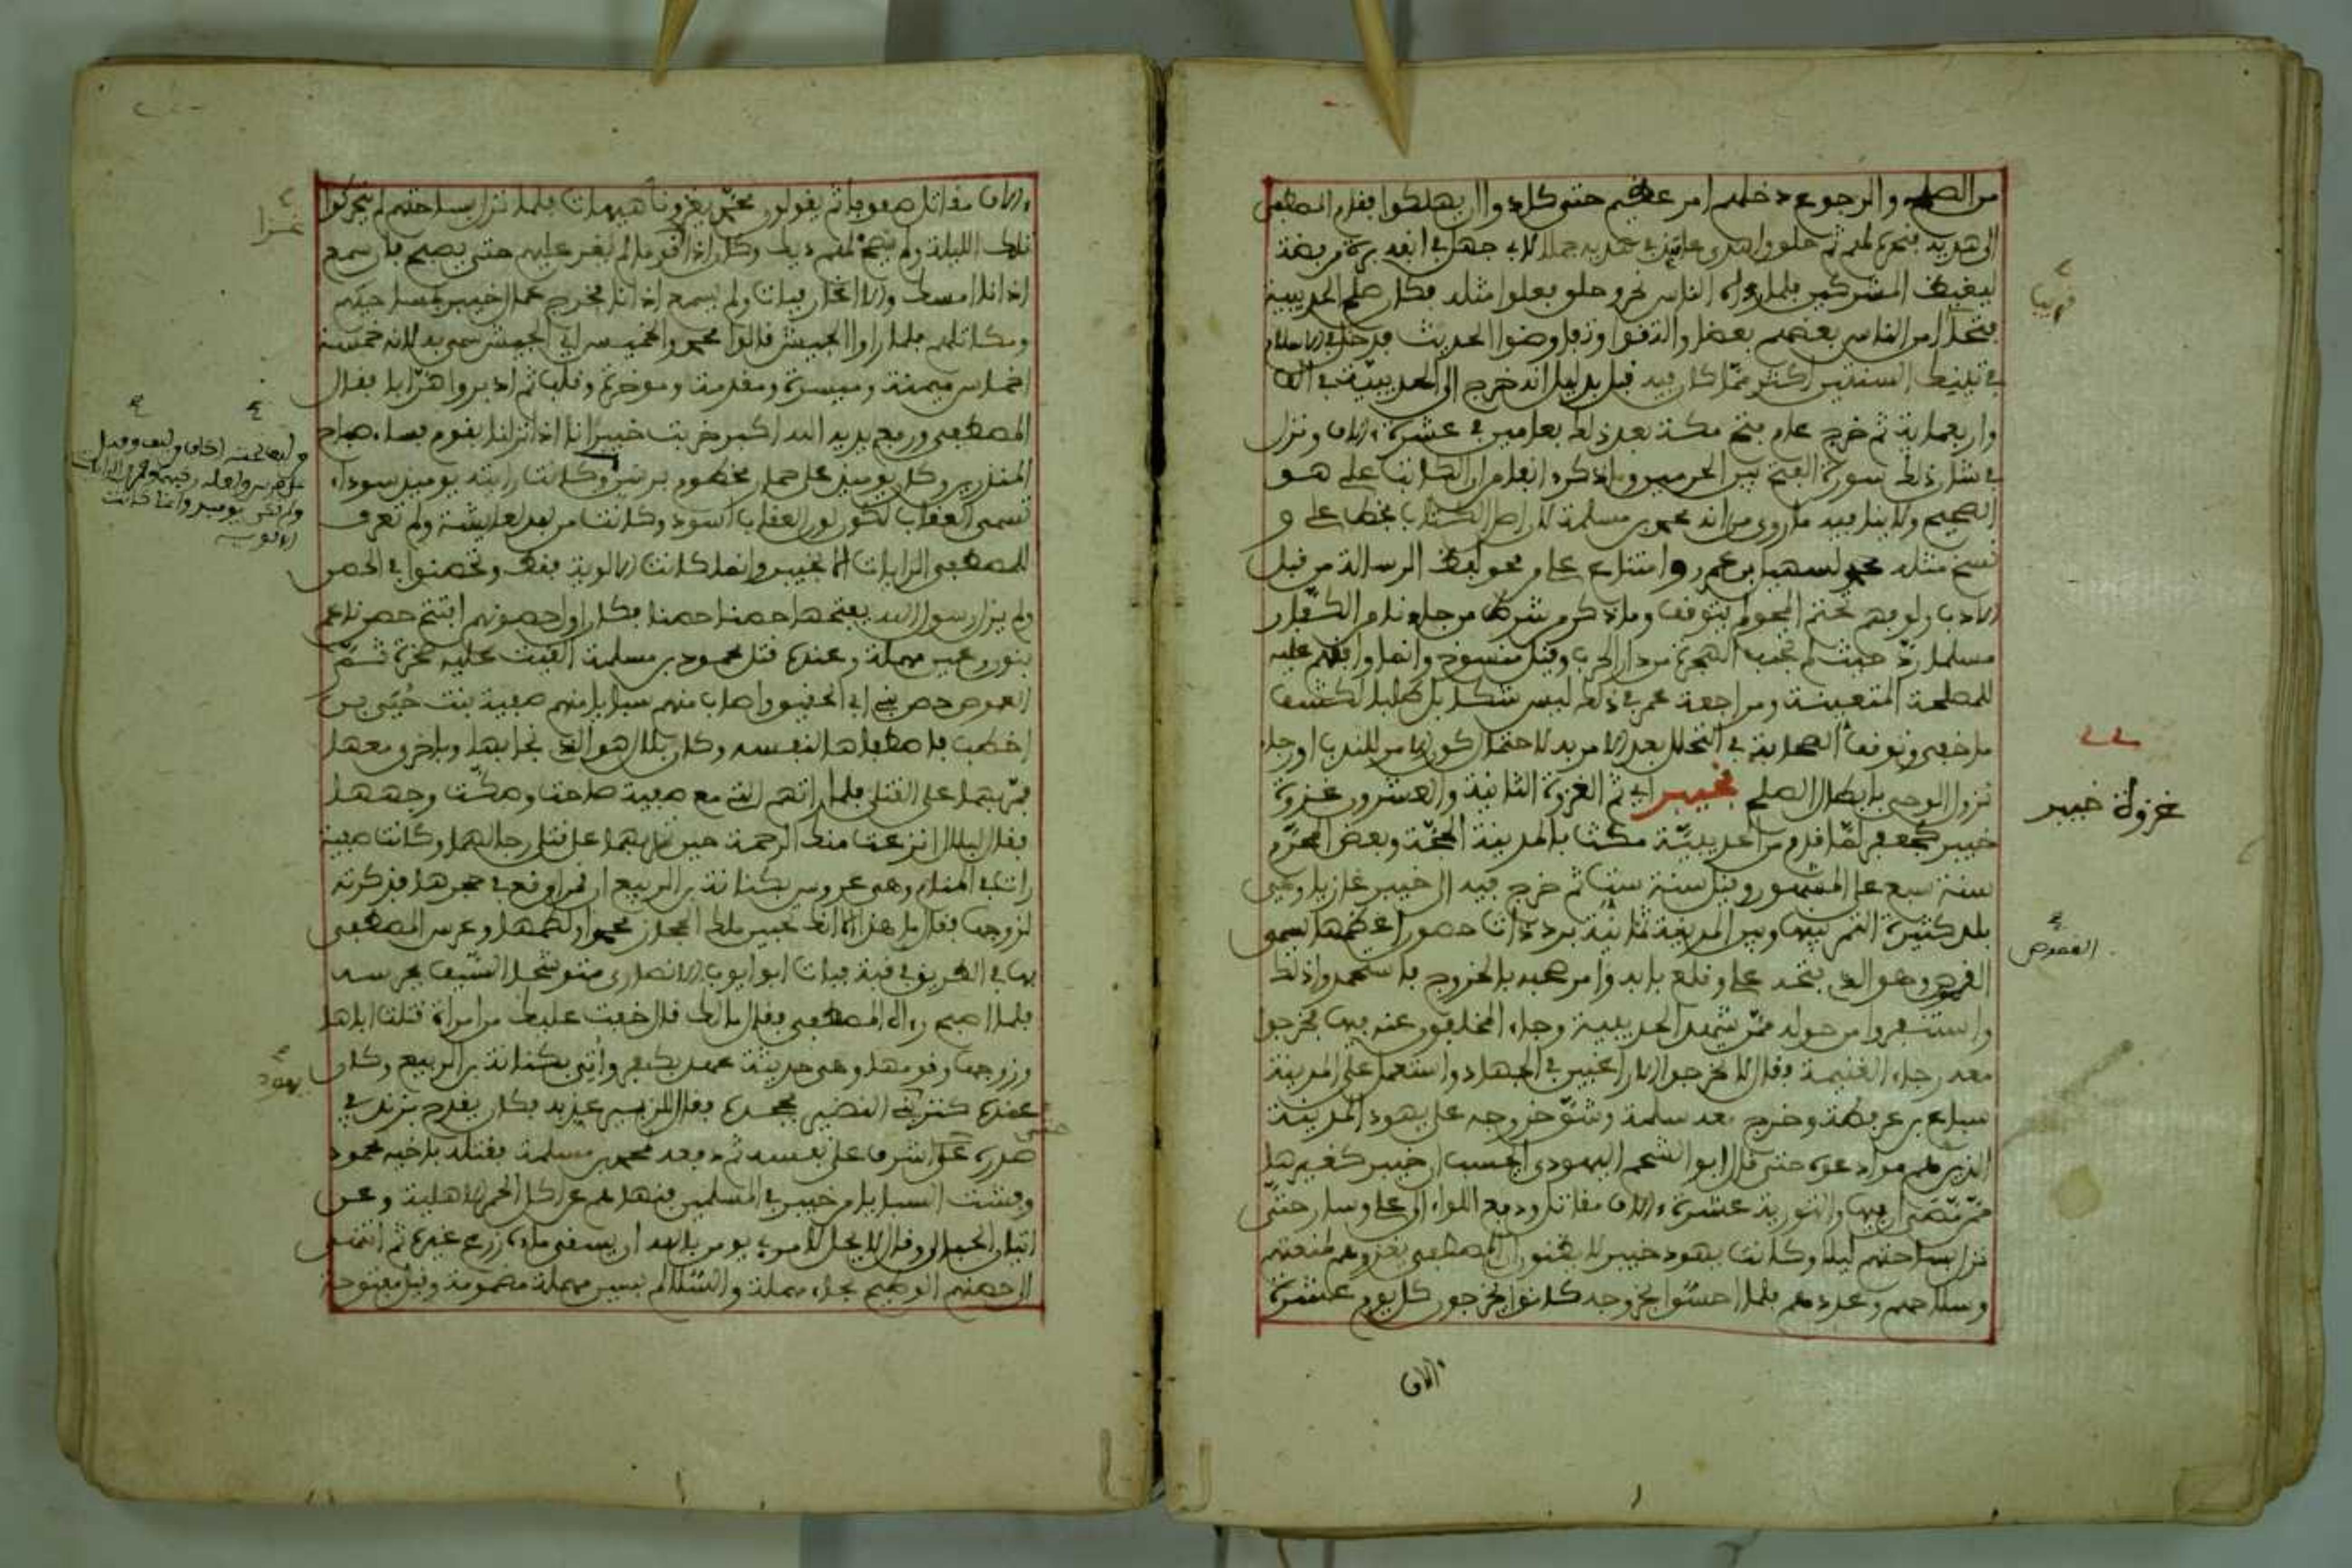 من الصلح والرجوع دخلهم امر عظيم حتى كادوا ان يهلكوا فقام المصطفى
الى هديه فنحره ثم حلق واهدى عامئذ في هديه جملا لابي جهل في انفه برة من فضة
ليغيظ المشركين فلما رءاه الناس نحر وحلق فعلوا مثله فكان صلح الحديبية
فتحا امن الناس بعضهم بعضا والتقوا وتفاوضوا الحديث فدخل في الاسلام
في تلنيك السنتين اكثر مما كان فيه قبل بدليل انه خرج الى الحديبية في الف
واربعماية ثم خرج عام فتح مكة بعد ذلك بعامين في عشرة ءالاف ونزل
في شان ذلك سورة الفتح بين الحرمين وما ذكره الناظم من ان الكاتب علي هو
الصحيح ولا ينافيه ما روي من انه محمد بن مسلمة لان اصل الكتاب بخط علي و
نسخ مثله محمد لسهيل بن عمرو وامتناع علي من محو لفظ الرسالة من قبيل
الادب ولو فهم تحتم المحو لم يتوقف وما ذكر من شرط من جاء من الكفار
مسلما رد حيث لم تجب الهجرة من دار الحرب وقيل منسوخ وانما وافقهم عليه
للمصلحة المتعينة ومراجعة عمر في ذلك ليس شكا بل طلبا لكشف
ما خفي وتوقف الصحابة في التحلل بعد الامر به لاحتمال كون الامر للندب او رجاء
نزول الوحي بابطال الصلح فخيبر اي ثم الغزوة الثانية والعشرون غزوة
خيبر كجعفر لما قدم من الحديبية مكث بالمدينة الحجة وبعض المحرم
سنة سبع على المشهور وقيل سنة ست ثم خرج فيه الى خيبر غازيا وهي
بلد كثيرة التمر بينها وبين المدينة ثمانية برد ذات حصون اعظمها يسمى
القموص وهو الذي فتحه علي وقلع بابه وامر صحبه بالخروج فاستعدوا لذلك
واستنفروا من حوله ممن شهد الحديبية وجاء المخلفون عنه فيها ليخرجوا
معه رجاء الغنيمة فقال لا تخرجوا الا راغبين في الجهاد واستعمل على المدينة
سباع بن عرفطة وخرج معه سلمة وشق خروجه على يهود المدينة
الذين هم موادعوه حتى قال ابو الشحم اليهودي اتحسب ان خيبر كغيرها
ممن مضى فيها والتورية عشرة ءالاف مقاتل ودفع اللواء الى علي وسار حتى
نزل بساحتهم ليلا وكانت يهود خيبر لا يظنون ان المصطفى يغزوهم لمنعتهم
وسلاحهم وعددهم فلما احسوا بخروجه كانوا يخرجون كل يوم عشرة
ءالاف
قريبا
غزوة خيبر
القموص
ءالاف مقاتل صفوفا ثم يقولون محمد يغزونا هيهات فلما نزل بساحتهم لم يتحركوا
تلك الليلة ولم يصح لهم ديك وكان اذا اتى قوما لم يغر عليهم حتى يصبح فان سمع
اذانا امسك والا اغار فبات ولم يسمع اذانا فخرج عمال خيبر بمساحيهم
ومكاتلهم فلما راوا الجيش قالوا محمد والخميس اي الجيش سمي به لانه خمسة
اخماس ميمنة وميسرة ومقدمة ومؤخرة وقلب ثم ادبروا هرابا فقال
المصطفى ورفع يديه الله اكبر خربت خيبر انا اذا نزلنا بقوم فساء صباح
المنذرين وكان يومئذ على حمار مخطوم برسن وكانت رايته يومئذ سوداء
تسمى العقاب لكون لون العقاب اسود وكانت من برد لعايشة ولم تعرف
للمصطفى الرايات الا بخيبر وانما كانت الالوية فقط وتحصنوا في الحصن
ولم يزل رسول الله يفتحها حصنا حصنا فكان اول حصونهم افتتح حصن ناعم
بنون وعين مهملة وعنده قتل محمود بن مسلمة القيت عليه صخرة ثم
القموص حصن بني ابي الحقيق واصاب منهم سبايا منهم صفية بنت حيي بن
اخطب فاصطفاها لنفسه وكان بلال هو الذي جاء بها وباخرى معها
فمر بهما على القتلى فلما راتهم التي مع صفية صاحت وصكت وجهها
فقال لبلال انزعت منك الرحمة حين تمر بهما على قتلى رجالهما وكانت صفية
رات في المنام وهي عروس بكنانة بن الربيع ان قمرا وقع في حجرها فذكرته
لزوجها فقال ما هذا الا انك تمنين ملك الحجاز محمدا ولطمها وعرس المصطفى
بها في الطريق في قبة فبات ابو ايوب الانصاري متوشحا السيف يحرسه
فلما اصبح رءاه المصطفى فقال ما لك قال خفت عليك من امراة قتلت اباها
وزوجها وقومها وهي حديثة عهد بكفر واتي بكنانة بن الربيع وكان
عنده كنز بني النضير فجحده فقال للزبير عذبه فكان يقدح بزند في
صدره حتى اشرف على نفسه ثم دفعه لمحمد بن مسلمة فقتله باخيه محمود
وفشت السبايا من خيبر في المسلمين فنهاهم عن اكل الحمر الاهلية وعن
اتيان الحبالى وقال لا يحل لامرئ يومن بالله ان يسقي ماءه زرع غيره ثم انتهى
الى حصنهم الوطيح بحاء مهملة والسلالم بسين مهملة مضمومة وقيل مفتوحة
غزا
يهود
حتى